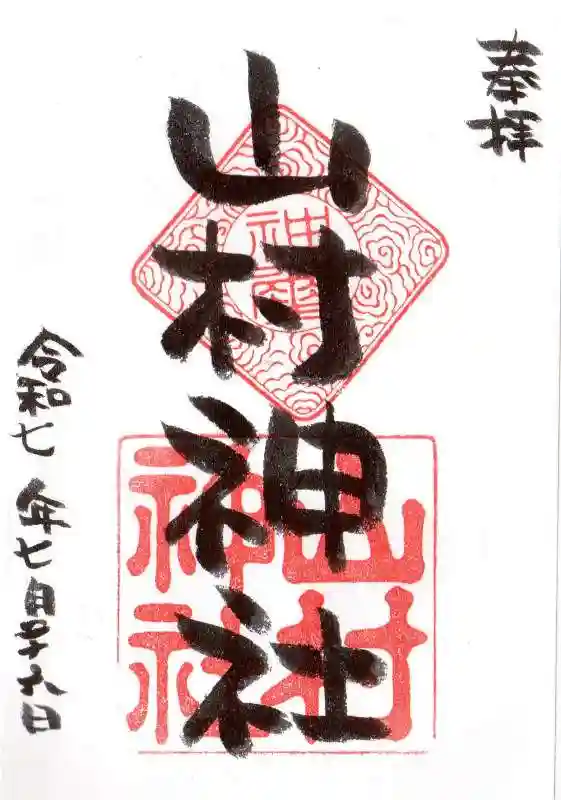 奉拝
山村神社
神璽
山村神社
令和七年七月廿六日